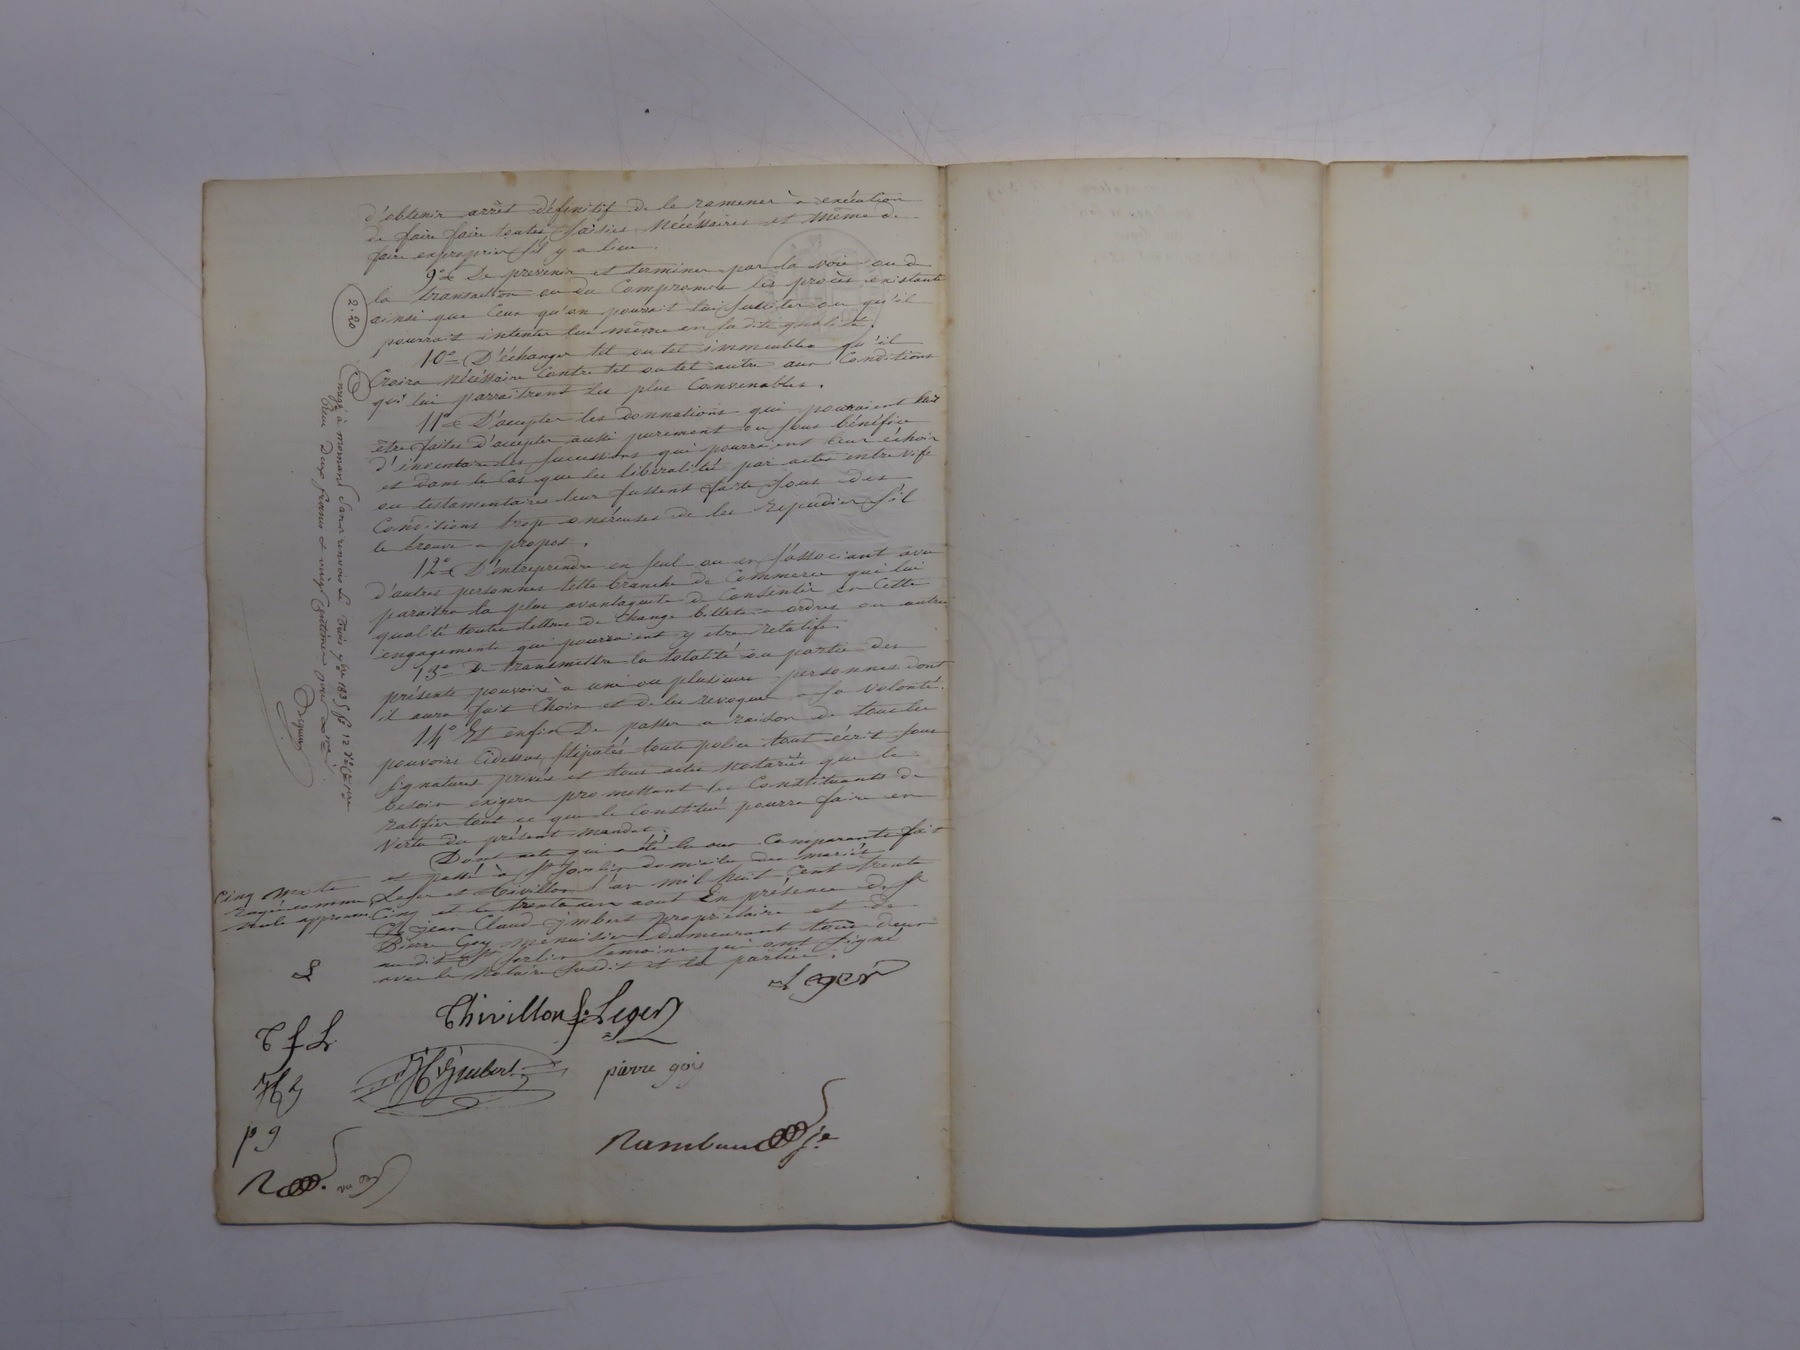 d'obtenir arrêt définitif de le ramener à exécution
de faire faire toutes saisies nécéssaires et même de
faire exproprier s'il y a lieu.
9° De prevenir et terminer par la voie ou de
la transaction ou du Compromis les procès existants
ainsi que Ceux qu'on pourait lui susciter ou qu'il
pourrait intenter lui même en sa dite qualité.
10° D'échanger tel ou tel immeubles qu'il
Croira nécéssaire Contre tel ou tel autre aux Conditions
qui lui parraitront les plus Convenables.
11° D'accepter les donnations qui pouraient leur
être faites d'accepter aussi purement ou sous bénéfice
d'inventaire les successions qui pourraient leur échoir
et dans le Cas que les libéralité par actes entre vifs
ou testamentaires leur fussent faite sous des
Conditions trop onéreuses de les repudier s'il
le trouve a propos.
12° D'entreprendre en seul ou en s'associant avec
d'autres personnes telle branche de Commerce qui lui
paraitra la plus avantageuse de Consentir en Cette
qualité toutes lettres de Change billets a ordres ou autres
engagements qui pourraient y etre relatifs.
13° De transmettre la totalité ou partie des
présents pouvoirs à une ou plusieurs personnes dont
il aura fait Choix et de les revoquer a sa volonté.
14° Et enfin De passer a raison de tous les
pouvoirs Cidessus stipulés toute police tout écrit sous
signatures privés et tous actes notariés que le
besoin exigera promettant les Constituants de
ratifier tout ce que le Constitué pourra faire en
vertu du présent mandat.
Dont acte qui a été lu aux Comparants fait
et passé à St Sorlin domicile des mariés
Leger et Thivillon l'an mil huit Cent trente
Cinq et le trente un aout En présence de Sr
jean Claude jmbert propriétaire et de
Pierre Goy menuisier demeurant tous deux
au dit St Sorlin temoins qui ont signé
avec le notaire susdit et les parties.
2.20
à mornant sans renvois le trois 7bre 1835 fo 12
Reçu Deux francs & vingt Centimes pour
Cinq mots
rayés comme
nuls approuvés
L
Leger
Thivillon fe Leger
T f L
Jmbert
pierre goy
p. g
Rambaud